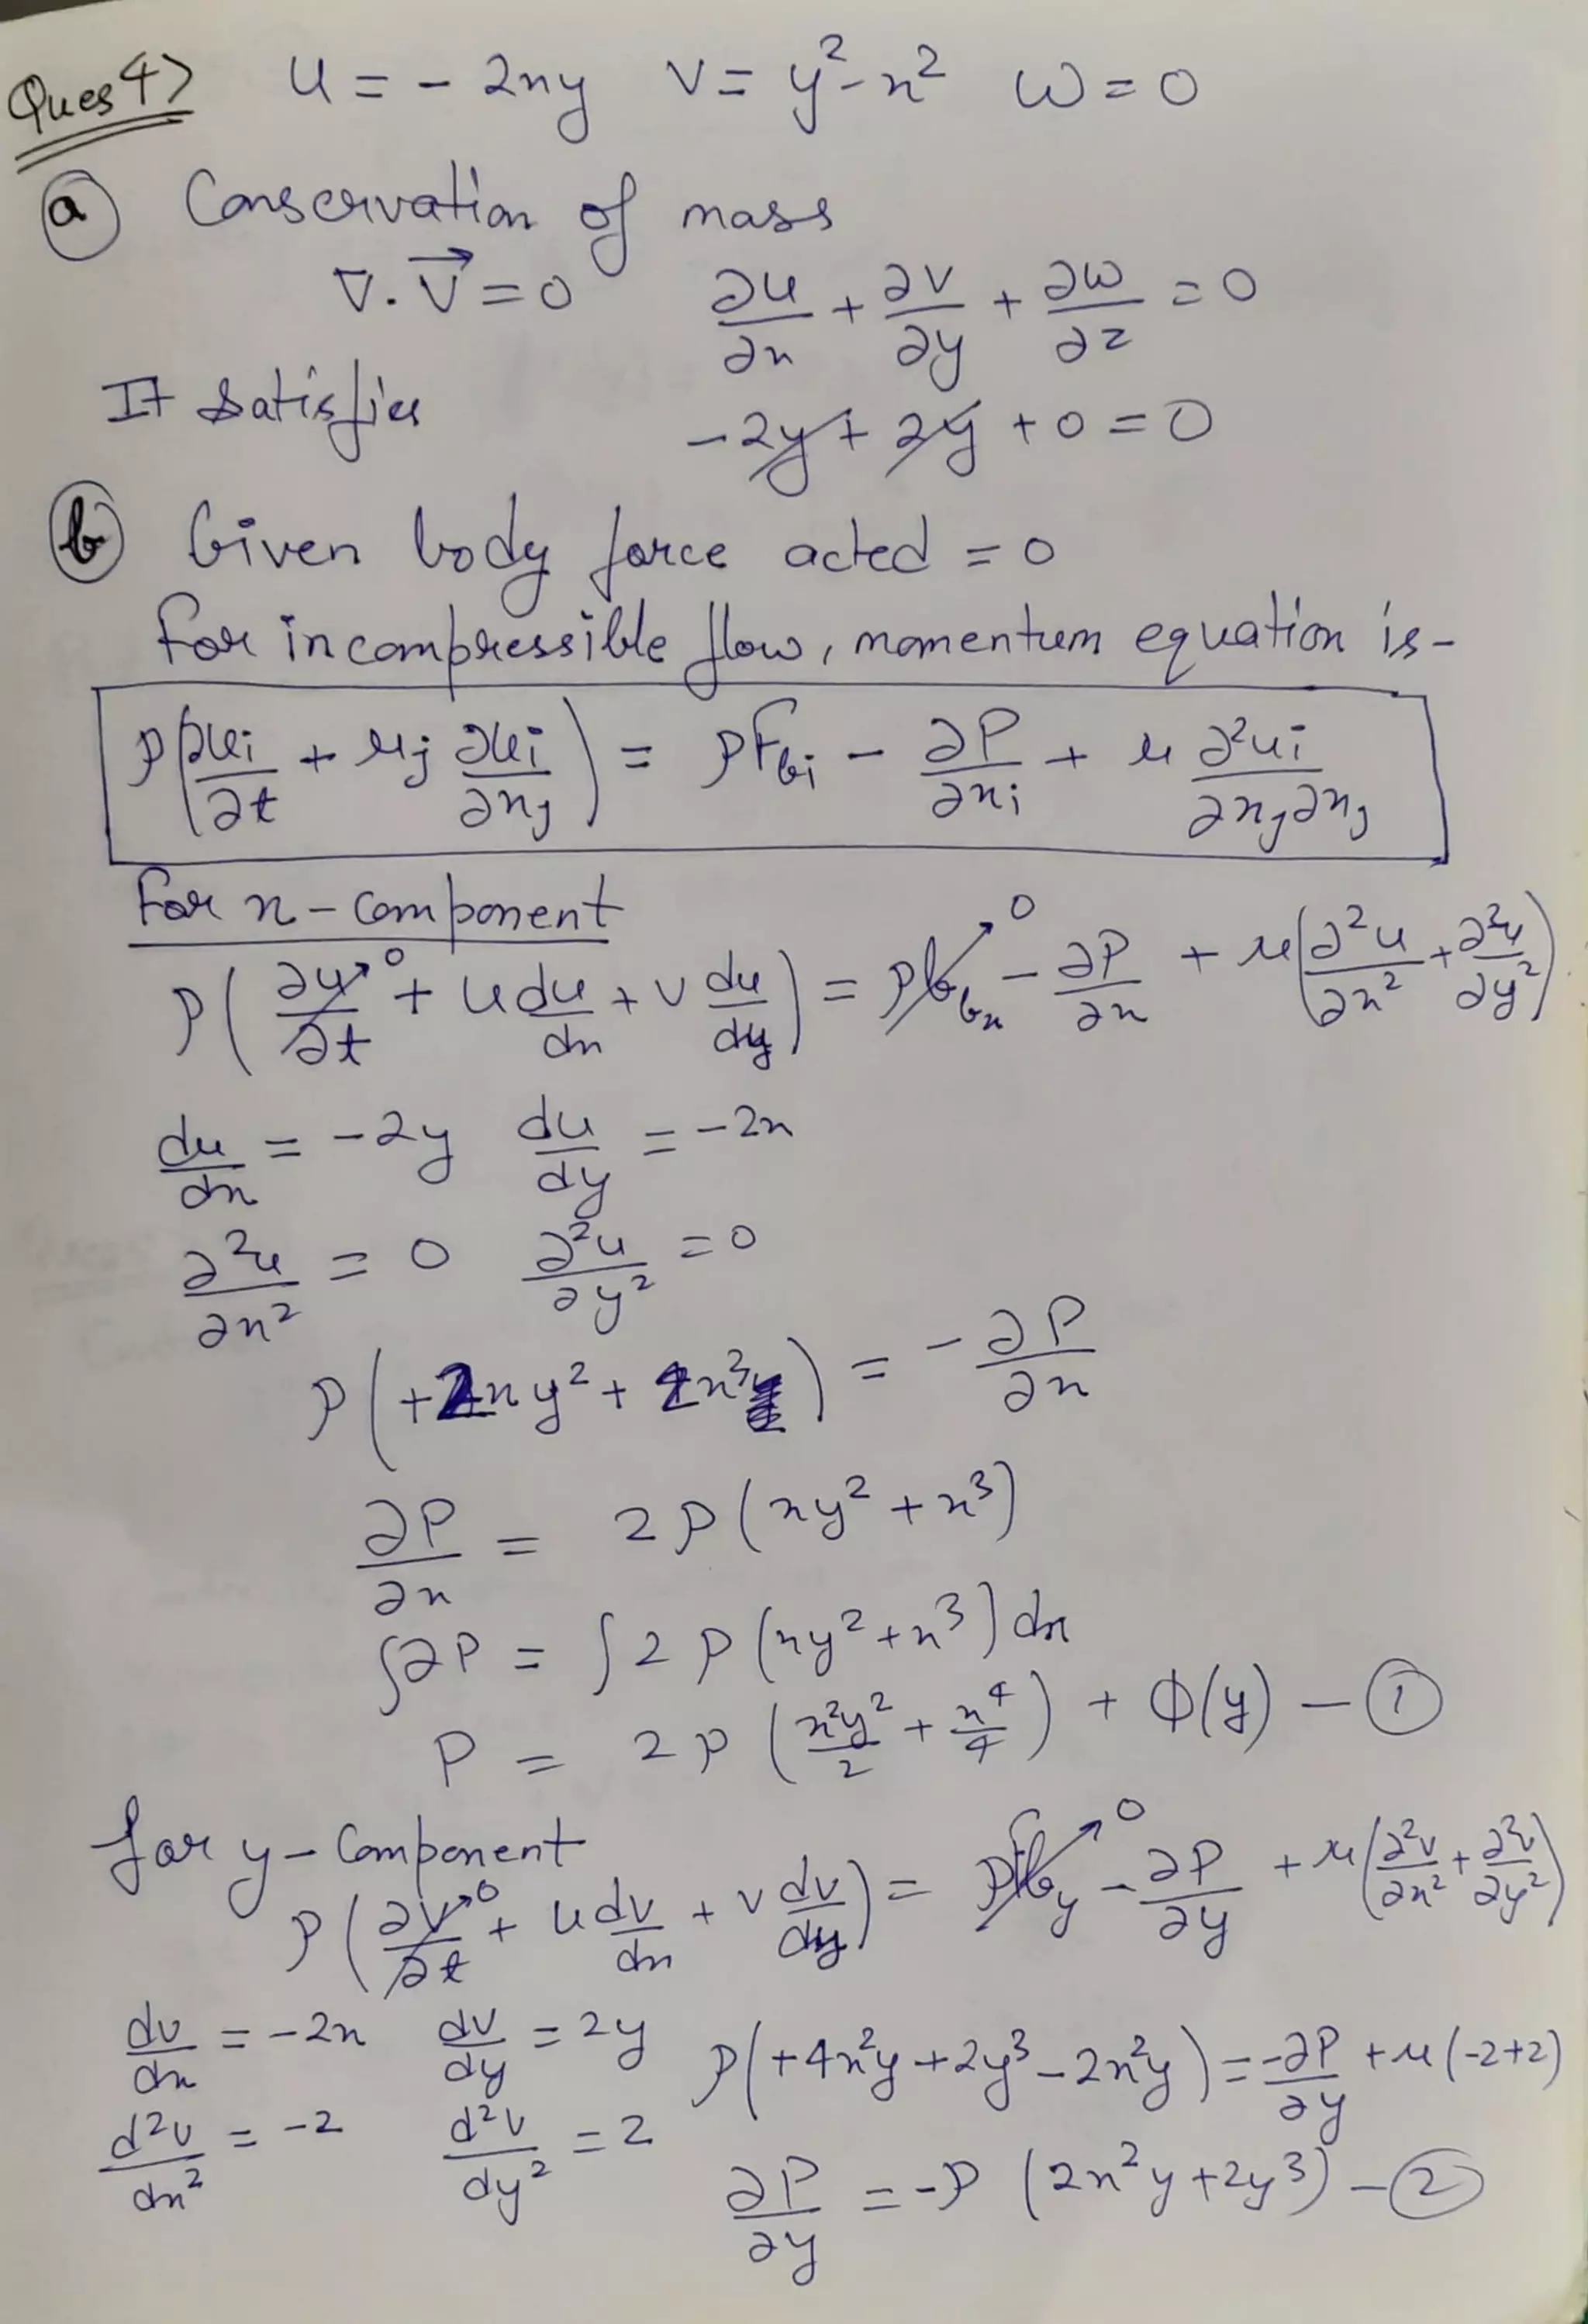 Ques 4> u = - 2xy v = y² - x² w = 0
(a) Conservation of mass
∇.V⃗ = 0 ∂u/∂x + ∂v/∂y + ∂w/∂z = 0
It satisfies -2y + 2y + 0 = 0
(b) Given body force acted = 0
For incompressible flow, momentum equation is-
ρ(∂ui/∂t + uj ∂ui/∂xj) = ρFbi - ∂P/∂xi + μ ∂²ui/∂xj∂xj
For x-component
ρ(∂u/∂t→0 + u du/dx + v du/dy) = ρFbx→0 - ∂P/∂x + μ(∂²u/∂x² + ∂²u/∂y²)
du/dx = -2y du/dy = -2x
∂²u/∂x² = 0 ∂²u/∂y² = 0
ρ(+2xy² + 2x³) = -∂P/∂x
∂P/∂x = 2ρ(xy² + x³)
∫∂P = ∫2ρ(xy² + x³)dx
P = 2ρ(x²y²/2 + x⁴/4) + Φ(y) - (1)
for y-component
ρ(∂v/∂t→0 + u dv/dx + v dv/dy) = ρFby→0 - ∂P/∂y + μ(∂²v/∂x² + ∂²v/∂y²)
dv/dx = -2x dv/dy = 2y ρ(+4x²y + 2y³ - 2x²y) = -∂P/∂y + μ(-2+2)
d²v/dx² = -2 d²v/dy² = 2
∂P/∂y = -ρ(2x²y + 2y³) - (2)